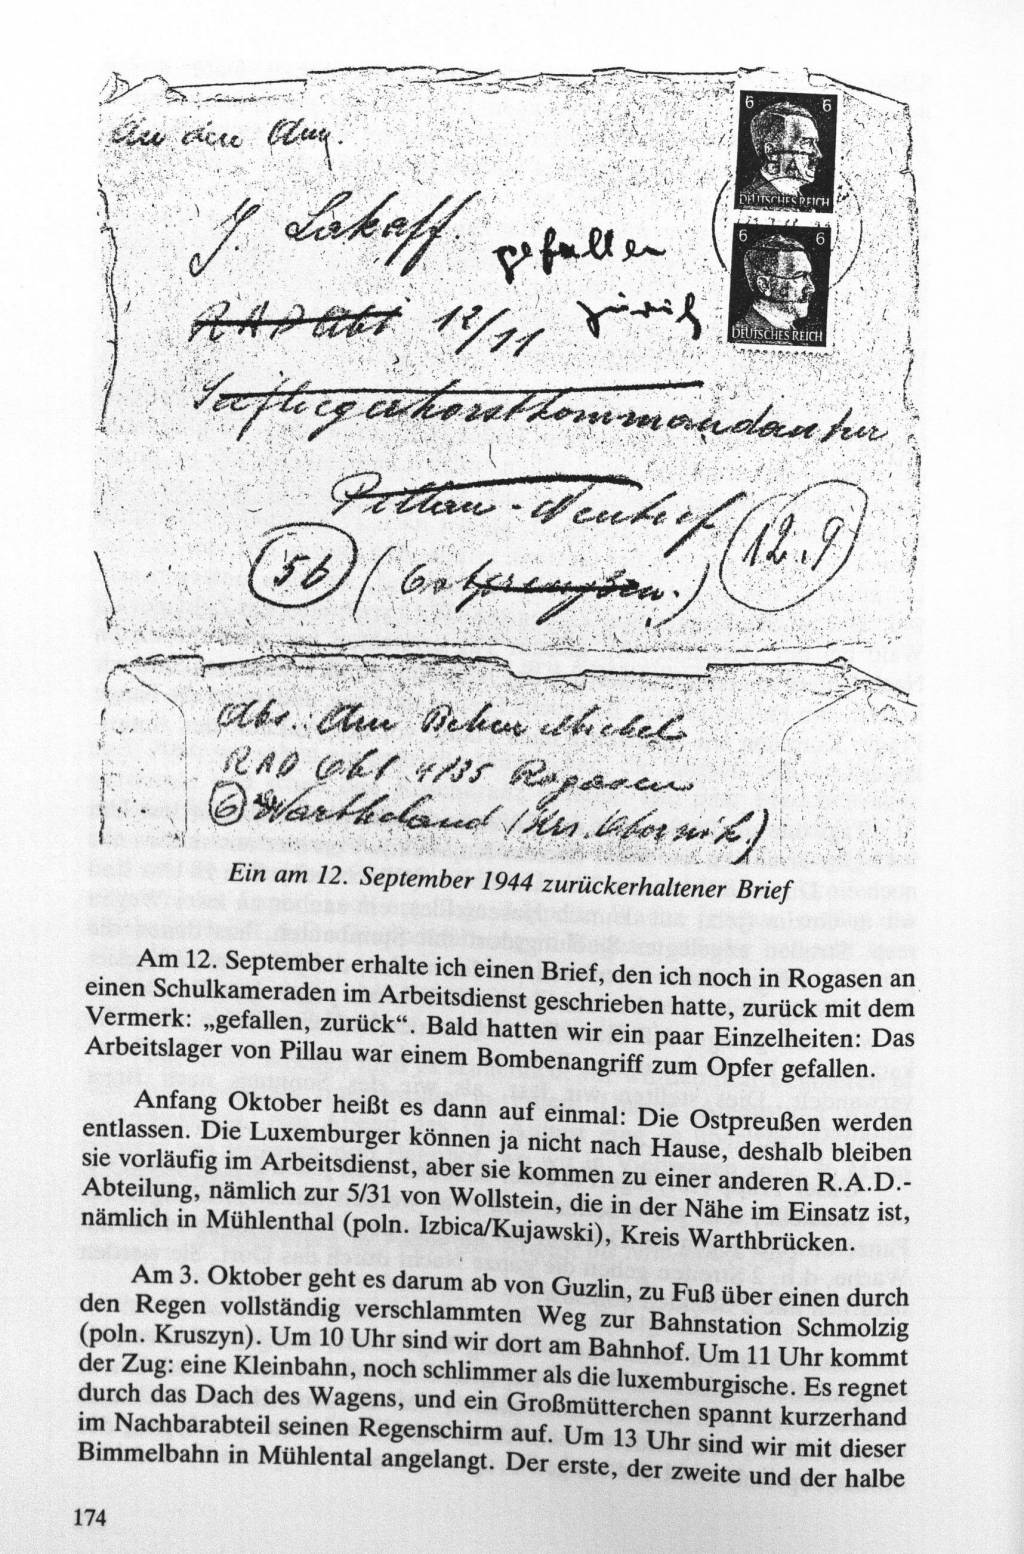 6 6
DEUTSCHES REICH
An den Am.
J. Lakaff.
gefallen
6 6
RAD Abt 12/11
zurück
DEUTSCHES REICH
Seefliegerhorstkommandantur
Pillau-Neutief
12.9
56 (Ostpreußen.)
Abs. Am Michel
RAD Abt 4/35 Rogasen
6 Wartheland (Krs. Obornik.)
Ein am 12. September 1944 zurückerhaltener Brief
Am 12. September erhalte ich einen Brief, den ich noch in Rogasen an
einen Schulkameraden im Arbeitsdienst geschrieben hatte, zurück mit dem
Vermerk: „gefallen, zurück“. Bald hatten wir ein paar Einzelheiten: Das
Arbeitslager von Pillau war einem Bombenangriff zum Opfer gefallen.
Anfang Oktober heißt es dann auf einmal: Die Ostpreußen werden
entlassen. Die Luxemburger können ja nicht nach Hause, deshalb bleiben
sie vorläufig im Arbeitsdienst, aber sie kommen zu einer anderen R.A.D.-
Abteilung, nämlich zur 5/31 von Wollstein, die in der Nähe im Einsatz ist,
nämlich in Mühlenthal (poln. Izbica/Kujawski), Kreis Warthbrücken.
Am 3. Oktober geht es darum ab von Guzlin, zu Fuß über einen durch
den Regen vollständig verschlammten Weg zur Bahnstation Schmolzig
(poln. Kruszyn). Um 10 Uhr sind wir dort am Bahnhof. Um 11 Uhr kommt
der Zug: eine Kleinbahn, noch schlimmer als die luxemburgische. Es regnet
durch das Dach des Wagens, und ein Großmütterchen spannt kurzerhand
im Nachbarabteil seinen Regenschirm auf. Um 13 Uhr sind wir mit dieser
Bimmelbahn in Mühlental angelangt. Der erste, der zweite und der halbe
174